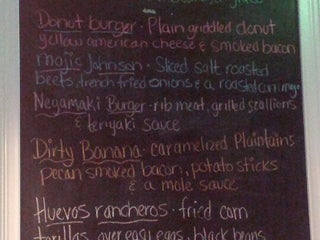 Donut burger · Plain griddled donut
yellow american cheese & smoked bacon
mojic Johnson · Sliced salt roasted
beets, french fried onions & a roasted corn mayo
Negamaki Burger · rib meat, grilled scallions
& teriyaki sauce
Dirty Banana · caramelized Plaintains
pecan smoked bacon, potato sticks
& a mole sauce
Huevos rancheros · fried corn
tortillas, over easy eggs, black beans